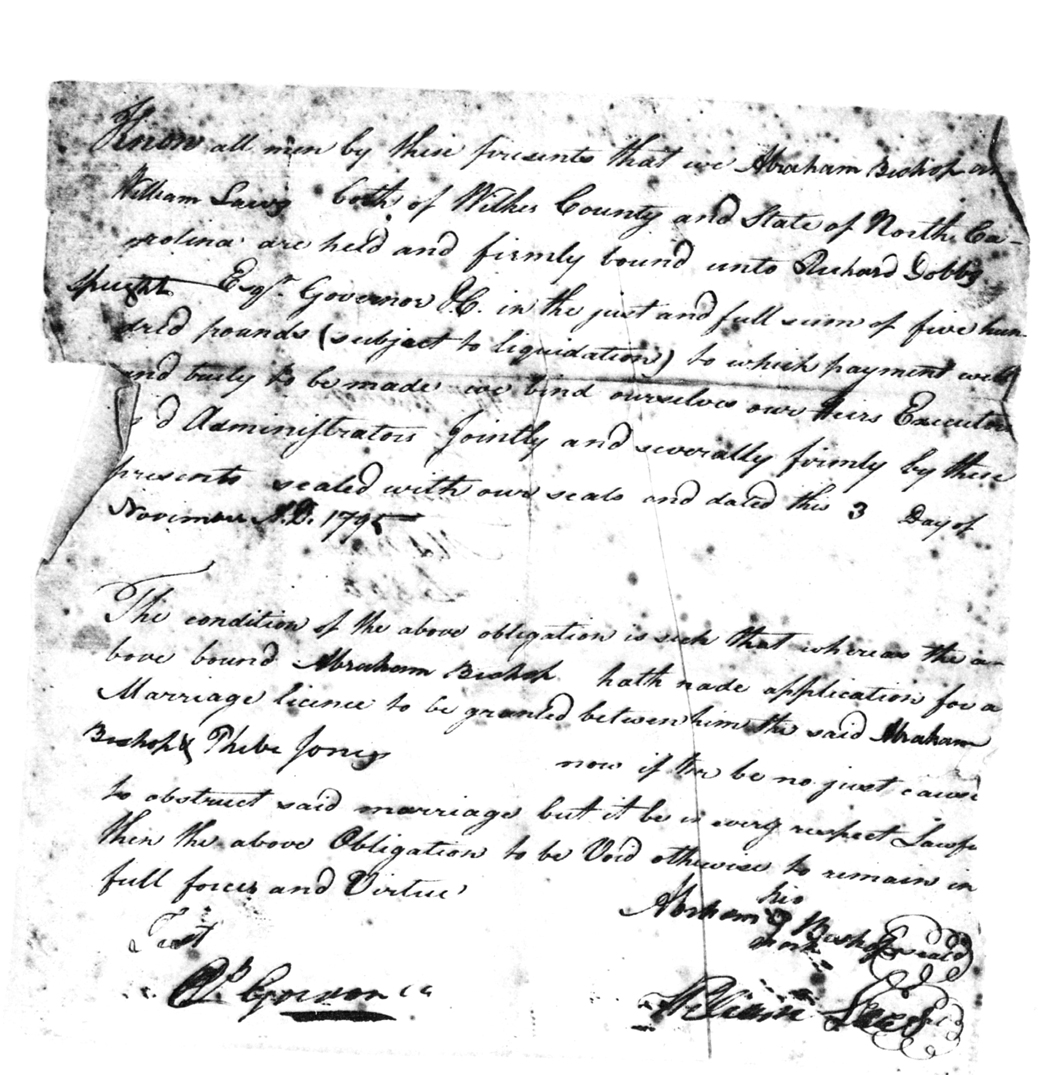 Know all men by these presents that we Abraham Bishop an
William Laws both of Wilkes County and State of North Ca-
rolina are held and firmly bound unto Richard Dobbs
Spaight Esqr. Governor &C. in the just and full sum of five hun
dred pounds (subject to liquidation) to which payment well
and truly to be made we bind ourselves our Heirs Executors
d Administrators Jointly and severally firmly by these
presents sealed with our seals and dated this 3 Day of
November A.D. 1795
The condition of the above obligation is such that whereas the a-
bove bound Abraham Bishop hath made application for a
Marriage licence to be granted between him the said Abraham
Bishop & Phebe Jones now if thr be no just cause
to obstruct said marriage but it be in every respect Lawfu
then the above Obligation to be Void otherwise to remain in
full force and Virtue
his
Test Abraham Bishop seald
mark
Gordon CC
William Laws